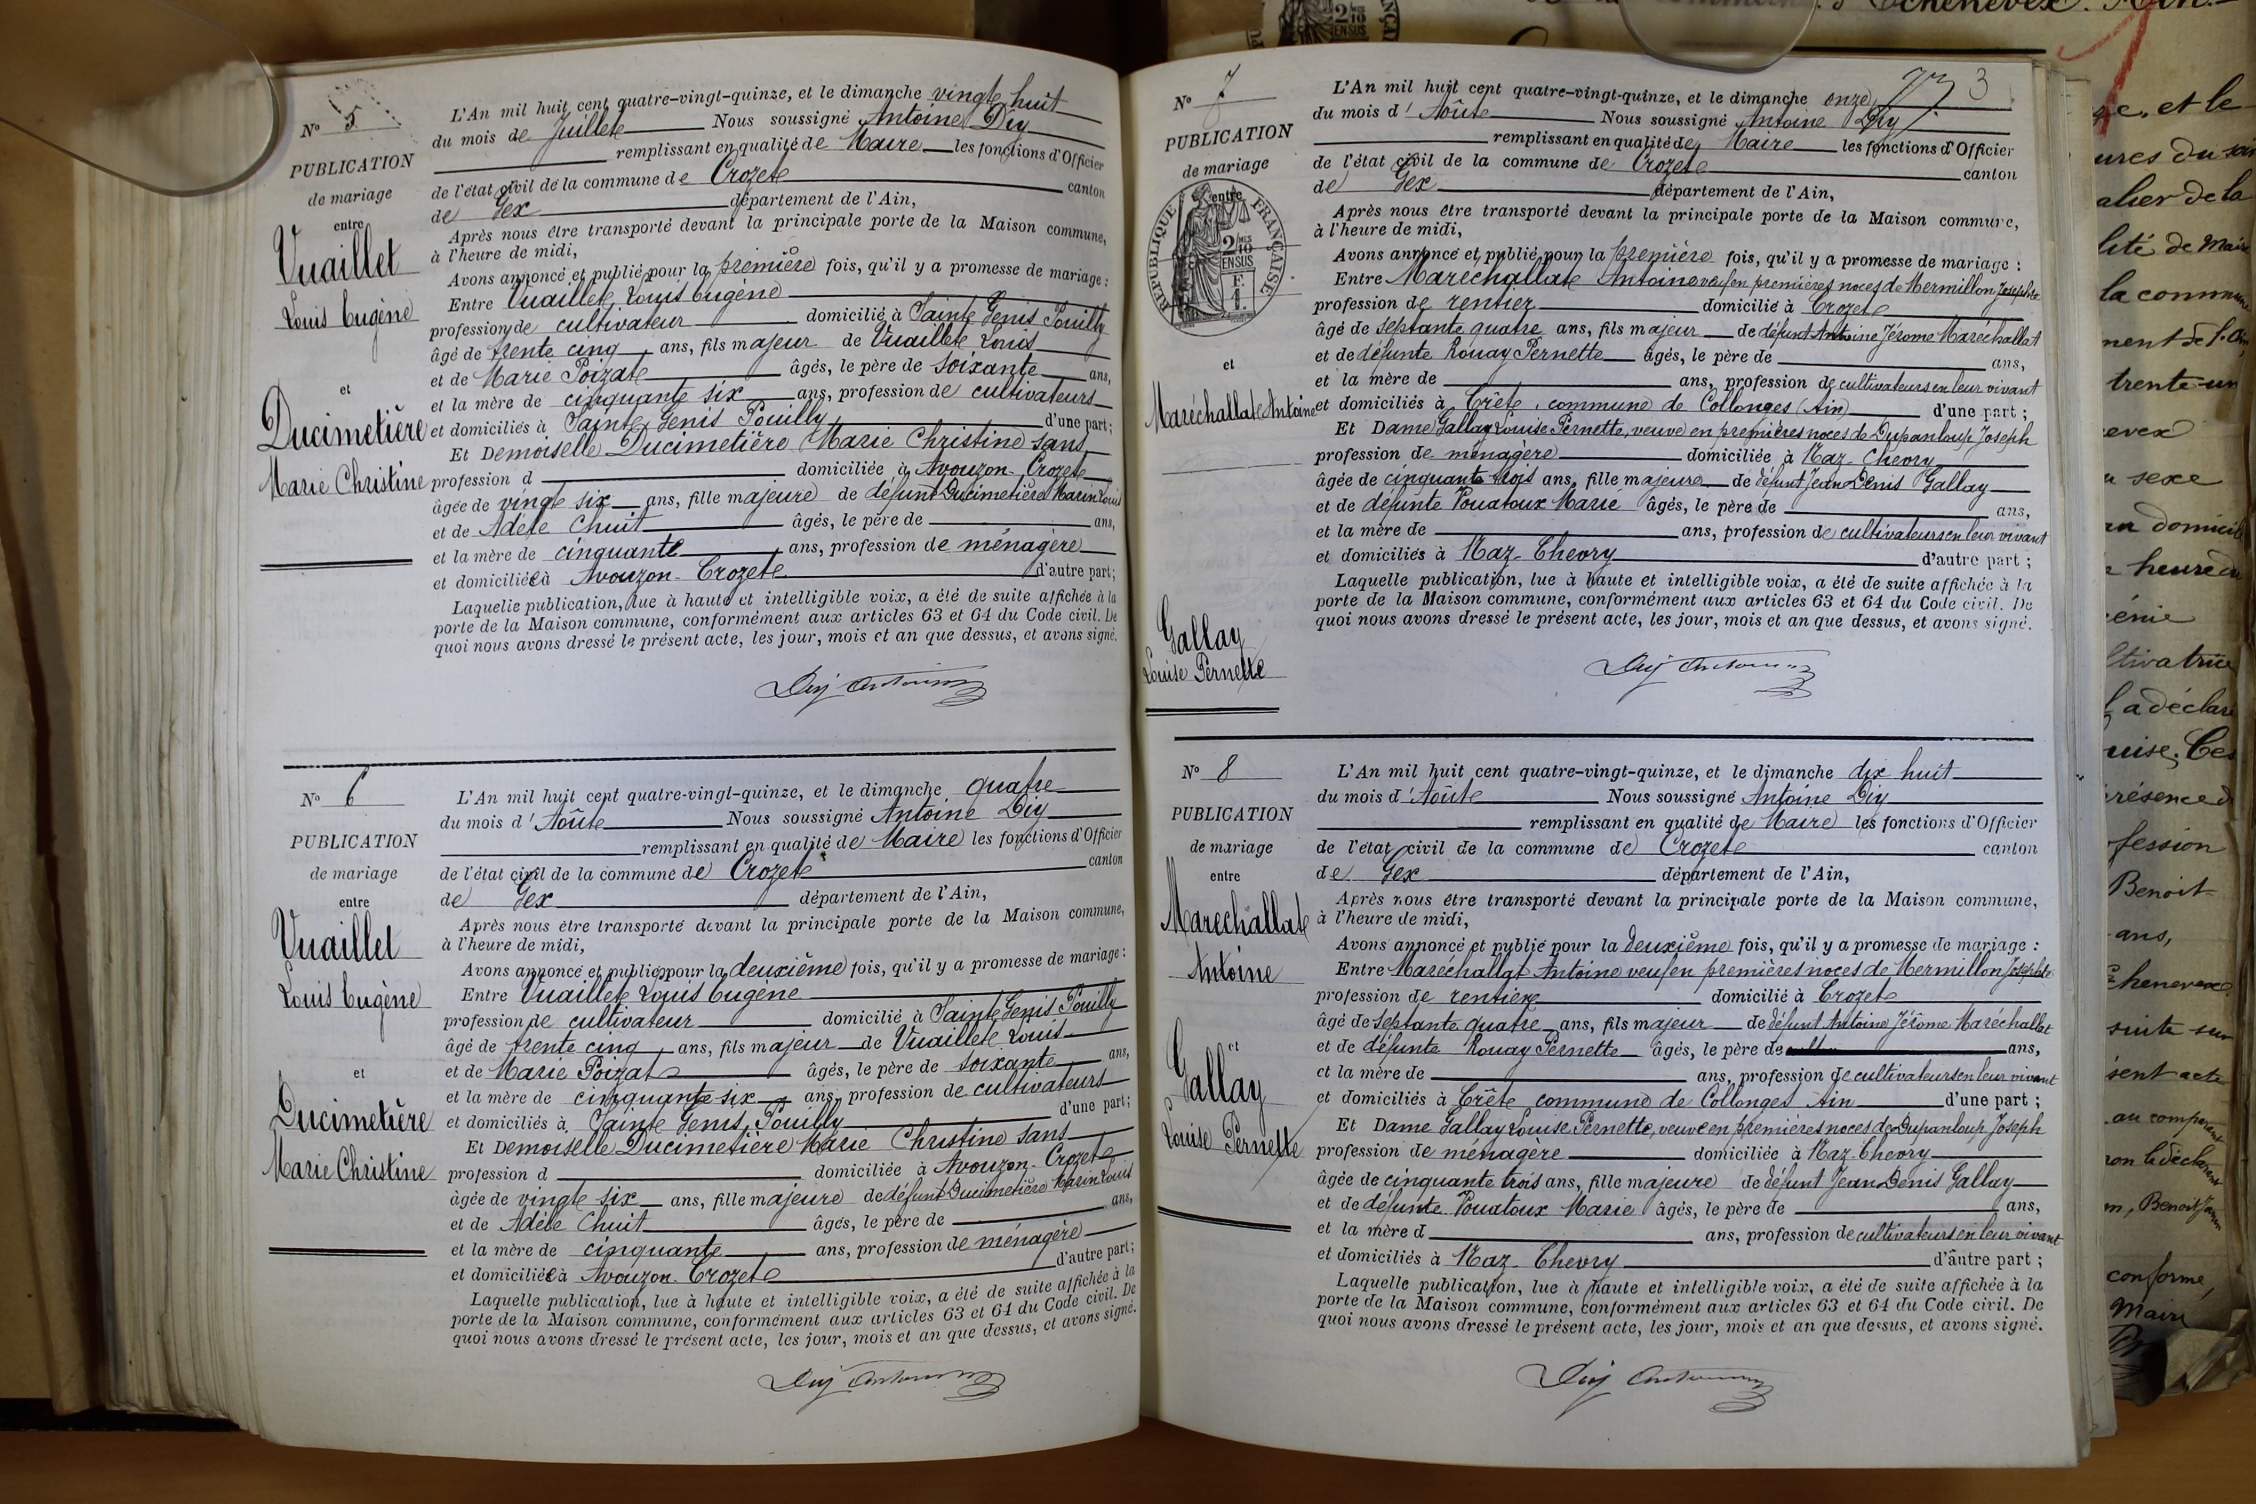 Nº 5
PUBLICATION
de mariage
entre
Vuaillet
Louis Eugène
et
Ducimetière
Marie Christine
L'An mil huit cent quatre-vingt-quinze, et le dimanche vingt huit
du mois de Juillet Nous soussigné Antoine Diy
remplissant en qualité de Maire les fonctions d'Officier
de l'état civil de la commune de Crozet canton
de Gex département de l'Ain,
Après nous être transporté devant la principale porte de la Maison commune,
à l'heure de midi,
Avons annoncé et publié pour la première fois, qu'il y a promesse de mariage :
Entre Vuaillet Louis Eugène
profession de cultivateur domicilié à Saint Genis Pouilly
âgé de trente cinq ans, fils majeur de Vuaillet Louis
et de Marie Poizat âgés, le père de soixante ans,
et la mère de cinquante six ans, profession de cultivateurs
et domiciliés à Saint Genis Pouilly d'une part;
Et Demoiselle Ducimetière Marie Christine sans
profession d domiciliée à Avouzon-Crozet
âgée de vingt six ans, fille majeure de défunt Ducimetière Marin Louis
et de Adèle Chuit âgés, le père de ans,
et la mère de cinquante ans, profession de ménagère
et domiciliée à Avouzon-Crozet d'autre part;
Laquelle publication, lue à haute et intelligible voix, a été de suite affichée à la
porte de la Maison commune, conformément aux articles 63 et 64 du Code civil. De
quoi nous avons dressé le présent acte, les jour, mois et an que dessus, et avons signé.
Diy Antoine
Nº 6
PUBLICATION
de mariage
entre
Vuaillet
Louis Eugène
et
Ducimetière
Marie Christine
L'An mil huit cent quatre-vingt-quinze, et le dimanche quatre
du mois d'Août Nous soussigné Antoine Diy
remplissant en qualité de Maire les fonctions d'Officier
de l'état civil de la commune de Crozet canton
de Gex département de l'Ain,
Après nous être transporté devant la principale porte de la Maison commune,
à l'heure de midi,
Avons annoncé et publié pour la deuxième fois, qu'il y a promesse de mariage :
Entre Vuaillet Louis Eugène
profession de cultivateur domicilié à Saint Genis Pouilly
âgé de trente cinq ans, fils majeur de Vuaillet Louis
et de Marie Poizat âgés, le père de soixante ans,
et la mère de cinquante six ans, profession de cultivateurs
et domiciliés à Saint Genis Pouilly d'une part;
Et Demoiselle Ducimetière Marie Christine sans
profession d domiciliée à Avouzon-Crozet
âgée de vingt six ans, fille majeure de défunt Ducimetière Marin Louis
et de Adèle Chuit âgés, le père de ans,
et la mère de cinquante ans, profession de ménagère
et domiciliée à Avouzon-Crozet d'autre part;
Laquelle publication, lue à haute et intelligible voix, a été de suite affichée à la
porte de la Maison commune, conformément aux articles 63 et 64 du Code civil. De
quoi nous avons dressé le présent acte, les jour, mois et an que dessus, et avons signé.
Diy Antoine
3
Nº 7
PUBLICATION
de mariage
entre
RÉPUBLIQUE FRANÇAISE
2/10
EN SUS
et
Maréchallat Antoine
Gallay
Louise Pernette
L'An mil huit cent quatre-vingt-quinze, et le dimanche onze
du mois d'Août Nous soussigné Antoine Diy
remplissant en qualité de Maire les fonctions d'Officier
de l'état civil de la commune de Crozet canton
de Gex département de l'Ain,
Après nous être transporté devant la principale porte de la Maison commure,
à l'heure de midi,
Avons annoncé et publié pour la première fois, qu'il y a promesse de mariage :
Entre Maréchallat Antoine veuf en premières noces de Mermillon Josephte
profession de rentier domicilié à Crozet
âgé de septante quatre ans, fils majeur de défunt Antoine Jérome Maréchallat
et de défunte Rouay Pernette âgés, le père de ans,
et la mère de ans, profession de cultivateurs en leur vivant
et domiciliés à Crêt, commune de Collonges (Ain) d'une part ;
Et Dame Gallay Louise Pernette, veuve en premières noces de Dupanloup Joseph
profession de ménagère domiciliée à Naz-Chevry
âgée de cinquante trois ans, fille majeure de défunt Jean Denis Gallay
et de défunte Pouatoux Marie âgés, le père de ans,
et la mère de ans, profession de cultivateurs en leur vivant
et domiciliés à Naz-Chevry d'autre part ;
Laquelle publication, lue à haute et intelligible voix, a été de suite affichée à la
porte de la Maison commune, conformément aux articles 63 et 64 du Code civil. De
quoi nous avons dressé le présent acte, les jour, mois et an que dessus, et avons signé.
Diy Antoine
Nº 8
PUBLICATION
de mariage
entre
Marechallat
Antoine
et
Gallay
Louise Pernette
L'An mil huit cent quatre-vingt-quinze, et le dimanche dix huit
du mois d'Août Nous soussigné Antoine Diy
remplissant en qualité de Maire les fonctions d'Officier
de l'état civil de la commune de Crozet canton
de Gex département de l'Ain,
Après nous être transporté devant la principale porte de la Maison commune,
à l'heure de midi,
Avons annoncé et publié pour la deuxième fois, qu'il y a promesse de mariage :
Entre Maréchallat Antoine veuf en premières noces de Mermillon Josephte
profession de rentier domicilié à Crozet
âgé de septante quatre ans, fils majeur de défunt Antoine Jérôme Maréchallat
et de défunte Rouay Pernette âgés, le père de ans,
et la mère de ans, profession de cultivateurs en leur vivant
et domiciliés à Crêt commune de Collonges Ain d'une part ;
Et Dame Gallay Louise Pernette, veuve en premières noces de Dupanloup Joseph
profession de ménagère domiciliée à Naz-Chevry
âgée de cinquante trois ans, fille majeure de défunt Jean Denis Gallay
et de défunte Pouatoux Marie âgés, le père de ans,
et la mère d ans, profession de cultivateurs en leur vivant
et domiciliés à Naz-Chevry d'autre part ;
Laquelle publication, lue à haute et intelligible voix, a été de suite affichée à la
porte de la Maison commune, conformément aux articles 63 et 64 du Code civil. De
quoi nous avons dressé le présent acte, les jour, mois et an que dessus, et avons signé.
Diy Antoine
et le
alier de la
lité de Maire
la commune
trente-un
sexe
domicile
heure du
a déclaré
Benoit
ans,
suite sur
sent acte
au comparant
Benoit
conforme,
Maire